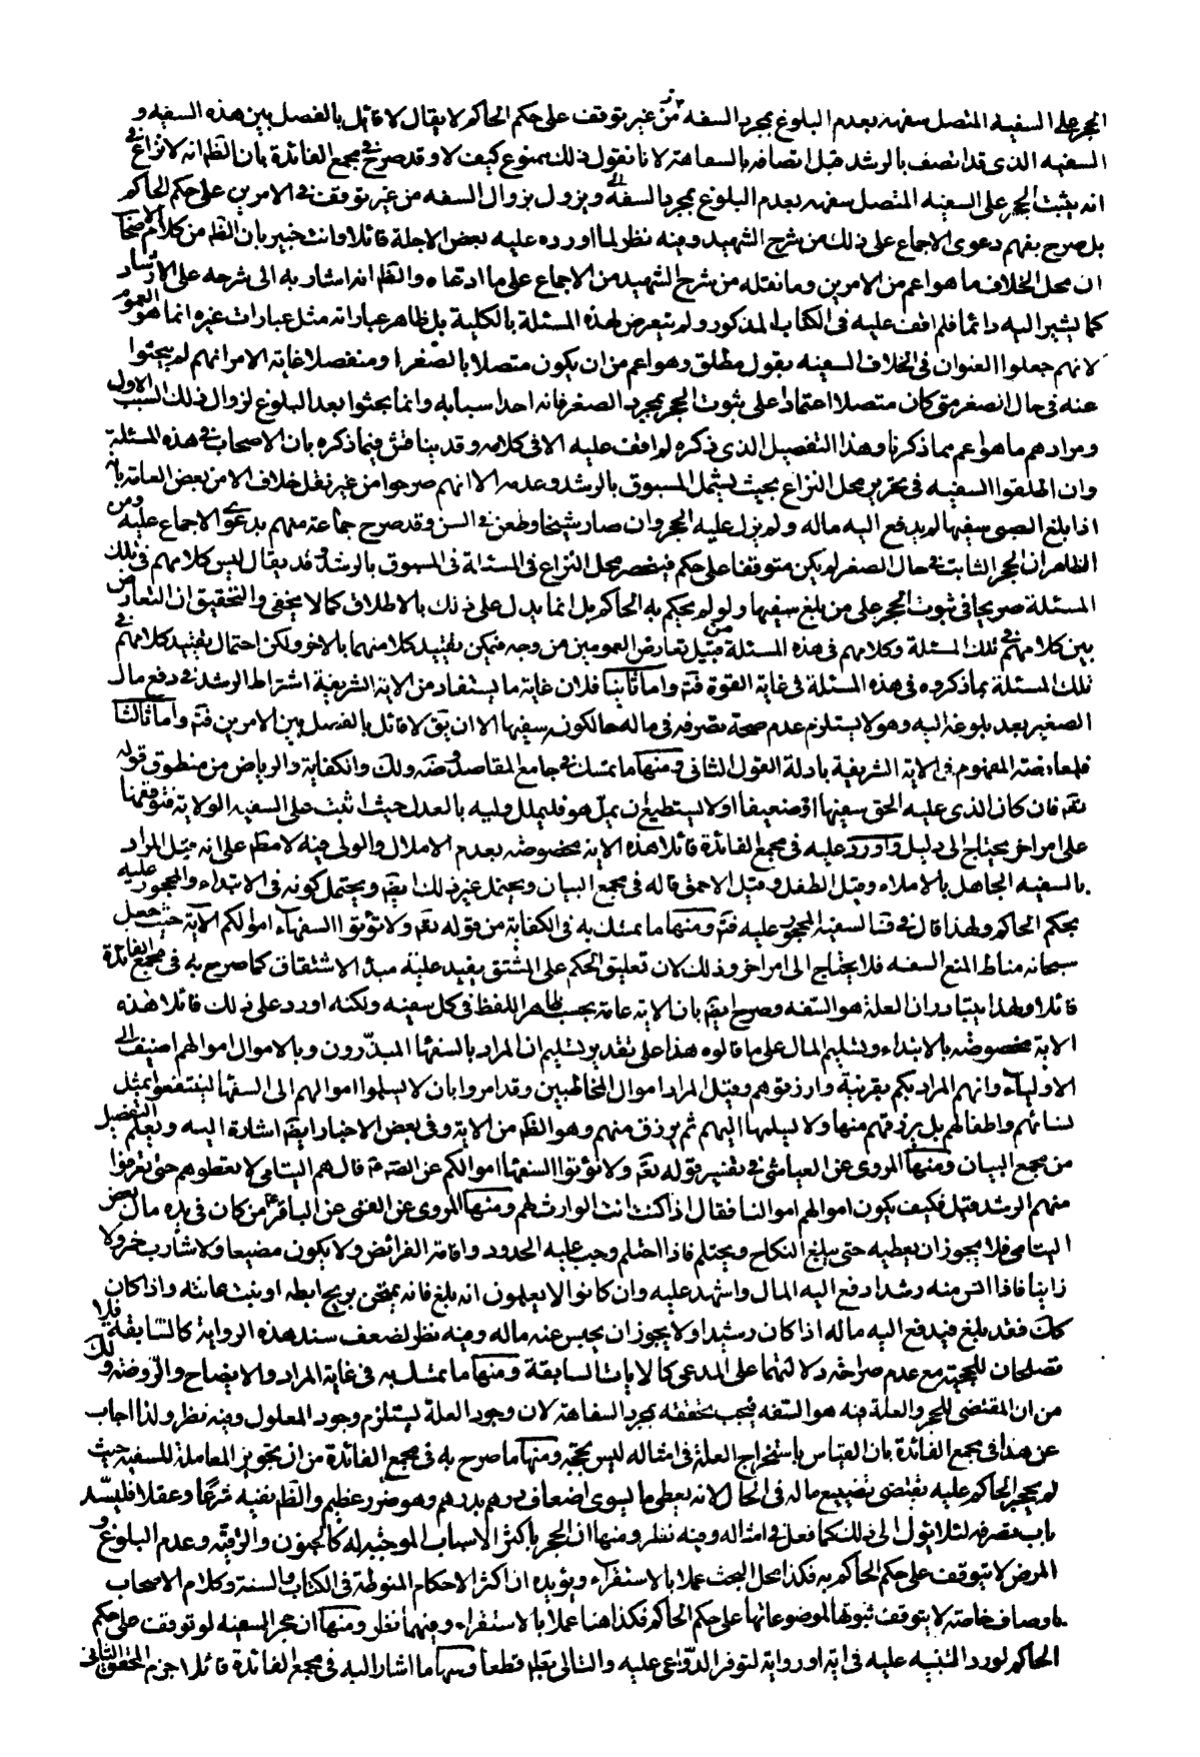 الحجر على السفيه المتصل سفهه بعدم البلوغ بمجرد السفه من غير توقف على حكم الحاكم لا يقال لا قائل بالفصل بين هذه السفيه و
السفيه الذى قد اتصف بالرشد قبل اتصافه بالسفاهة لانا نقول ذلك ممنوع كيف لا وقد صرح فى مجمع الفائدة بان الظ انه لا نزاع فى
انه يثبت الحجر على السفيه المتصل سفهه بعدم البلوغ بمجرد السفه ويزول بزوال السفه من غير توقف فى الامرين على حكم الحاكم
بل صرح بفهم دعوى الاجماع على ذلك من شرح الشهيد وفيه نظر لما اورده عليه بعض الاجلة قائلا وانت خبير بان الظ من كلام الاصحاب
ان محل الخلاف ما هو اعم من الامرين وما نقله من شرح الشهيد من الاجماع على ما ادعاه والظ انه اشار به الى شرحه على الارشاد
كما يشير اليه دائما فلم اقف عليه فى الكتاب المذكور ولم يتعرض لهذه المسئلة بالكلية بل ظاهر عباراته مثل عبارات غيره انما هو العموم
لانهم جعلوا العنوان فى الخلاف السفيه بقول مطلق وهو اعم من ان يكون متصلا بالصغر او منفصلا غاية الامر انهم لم يبحثوا
عنه فى حال الصغر متى كان متصلا اعتمادا على ثبوت الحجر بمجرد الصغر فانه احد اسبابه وانما بحثوا بعد البلوغ لزوال ذلك السبب الاول
ومرادهم ما هو اعم مما ذكرنا وهذا التفصيل الذى ذكره لم اقف عليه الا فى كلامه وقد يناقش فيما ذكره بان الاصحاب فى هذه المسئلة
وان اطلقوا السفيه فى تحرير محل النزاع بحيث يشمل المسبوق بالرشد وعدمه الا انهم صرحوا من غير نقل خلاف الا من بعض العامة بانه
اذا بلغ الصبى سفيها لم يدفع اليه ماله ولم يزل عليه الحجر وان صار شيخا وطعن فى السن وقد صرح جماعة منهم بدعوى الاجماع عليه ومن
الظاهر ان الحجر الثابت فى حال الصغر لم يكن متوقفا على حكم فينحصر محل النزاع فى المسئلة فى المسبوق بالرشد وقد يقال ليس كلامهم فى تلك
المسئلة صريحا فى ثبوت الحجر على من بلغ سفيها ولو لم يحكم به الحاكم بل انما يدل على ذلك بالاطلاق كما لا يخفى والتحقيق ان التعارض
بين كلامهم فى تلك المسئلة وكلامهم فى هذه المسئلة من قبيل تعارض العمومين من وجه فيمكن تقييد كل منهما بالاخر ولكن احتمال تقييد كلامهم فى
تلك المسئلة بما ذكروه فى هذه المسئلة فى غاية القوة فتم واما ثانيا فلان غاية ما يستفاد من الاية الشريفة اشتراط الرشد فى دفع مال
الصغير بعد بلوغه اليه وهو لا يستلزم عدم صحة تصرفه فى ماله حالكونه سفيها الا ان يق لا قائل بالفصل بين الامرين فتم واما ثالثا
فلمعارضة المفهوم فى الاية الشريفة بادلة القول الثانى ومنها ما تمسك فى جامع المقاصد وضه ولك والكفاية والرياض من منطوق قوله
تعه فان كان الذى عليه الحق سفيها او ضعيفا او لا يستطيع ان يمل هو فليملل وليه بالعدل حيث اثبت على السفيه الولاية فتوقفها
على امر اخر يحتاج الى دليل واورد عليه فى مجمع الفائدة قائلا هذه الاية مخصوصة بعدم الاملال والولى فيه لا مطم على انه قيل المراد
بالسفيه الجاهل بالاملاء وقيل الطفل وقيل الاحمق قاله فى مجمع البيان ويحتمل غير ذلك ايضه ويحتمل كونه فى الابتداء والمحجور عليه
بحكم الحاكم ولهذا قال فى فنا السفيه المحجور عليه فتم ومنها ما تمسك به فى الكفاية من قوله تعه ولا تؤتوا السفهاء اموالكم الاية حيث جعل
سبحانه مناط المنع السفه فلا يحتاج الى امر اخر وذلك لان تعليق الحكم على المشتق يفيد علية مبدأ الاشتقاق كما صرح به فى مجمع الفائدة
قائلا ولهذا يتبادر ان العلة هو السفه وصرح ايضه بان الاية عامة بحسب ظاهر اللفظ فى كل سفيه ولكنه اورد على ذلك قائلا هذه
الاية مخصوصة بالابتداء وتسليم المال على ما قالوه هذا على تقدير تسليم ان المراد بالسفهاء المبذرون وبالاموال اموالهم اضيف الى
الاولياء وانهم المراد بكم بقرينة وارزقوهم وقيل المراد اموال المخاطبين وقد امروا بان لا يسلموا اموالهم الى السفهاء لينتفعوا بمثل
نسائهم واطفالهم بل يرزقهم منها ولا يسلمها اليهم ثم يرزق منهم وهو الظ من الاية وفى بعض الاخبار ايضه اشارة اليه ويعلم التفصيل
من مجمع البيان ومنها المروى عن العياشى فى تفسير قوله تعه ولا تؤتوا السفهاء اموالكم عن الصه قه قال هم اليتامى لا تعطوهم حتى تعرفوا
منهم الرشد قيل فكيف يكون اموالهم اموالنا فقال اذا كنت انت الوارث لهم ومنها المروى عن القمى عن الباقر ع من كان فى يده مال بعض
اليتامى فلا يجوز ان يعطيه حتى يبلغ النكاح ويحتلم فاذا احتلم وجب عليه الحدود واقامة الفرائض ولا يكون مضيعا ولا شارب خمر ولا
زانيا فاذا انس منه رشدا دفع اليه المال واشهد عليه وان كانوا لا يعلمون انه بلغ فانه يمتحن بريح ابطه او نبت عانته واذا كان
كك فقد بلغ فيدفع اليه ماله اذا كان رشيدا ولا يجوز ان يحبس عنه ماله وفيه نظر لضعف سند هذه الرواية كالسابقة فلا
تصلحان للحجية مع عدم صراحة دلالتهما على المدعى كالايات السابقة ومنها ما تمسك به فى غاية المراد والايضاح والروضة ولك
من ان المقتضى للحجر والعلة فيه هو السفه فيجب تحققه بمجرد السفاهة لان وجود العلة يستلزم وجود المعلول وفيه نظر ولذا اجاب
عن هذا فى مجمع الفائدة بان القياس باستخراج العلة فى امثاله ليس بحجة ومنها ما صرح به فى مجمع الفائدة من ان تجويز المعاملة للسفيه حيث
لم يحجر الحاكم عليه يقتضى تضييع ماله فى الحال لانه يعطى ما يسوى اضعاف درهم بدرهم وهو ضرر عظيم والظ نفيه شرعا وعقلا فليسد
باب تصرفه لئلا يؤل الى ذلك كما فعل فى امثاله وفيه نظر ومنها ان الحجر باكثر الاسباب الموجبة له كالجنون والرقية وعدم البلوغ و
المرض لا يتوقف على حكم الحاكم به فكذا محل البحث عملا بالاستقراء ويؤيده ان اكثر الاحكام المنوطة فى الكتاب والسنة وكلام الاصحاب
باوصاف خاصة لا يتوقف ثبوتها لموضوعاتها على حكم الحاكم فكذا هنا عملا بالاستقراء وفيهما نظر ومنها ان حجر السفيه لو توقفت على حكم
الحاكم لورد التنبيه عليه فى اية او رواية لتوفر الدواعى عليه والتالى بط قطعا ومنها ما اشار اليه فى مجمع الفائدة قائلا جزم المحقق الثانى